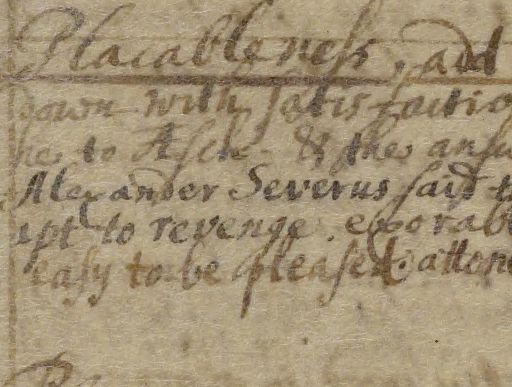 Placableness, add
down with satisfactio
he to Asch & the answ
Alexander Severus said t
apt to revenge. exorabl
easy to be pleased. attone